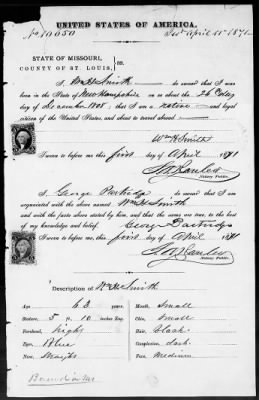 UNITED STATES OF AMERICA.
No 10050
April 15 1871
STATE OF MISSOURI,
COUNTY OF ST. LOUIS,
I, Wm H Smith do swear that I was
born in the State of New Hampshire on or about the day
of December 1807; that I am a native and legal
citizen of the United States, and about to travel abroad.
Wm H Smith
Sworn to before me this first day of April 1871
Notary Public.
I, George Partridge do swear that I am
acquainted with the above named Wm H Smith
and with the facts above stated by him, and that the same are true, to the best
of my knowledge and belief.
George Partridge
Sworn to before me, this first day of April 1871
Notary Public.
Description of Wm H Smith
Age 63 years.
Mouth, Small
Stature, 5 ft. 10 inches Eng.
Chin, Small
Forehead, high
Hair, black
Eyes, Blue
Complexion, dark
Nose, Straight
Face, Medium